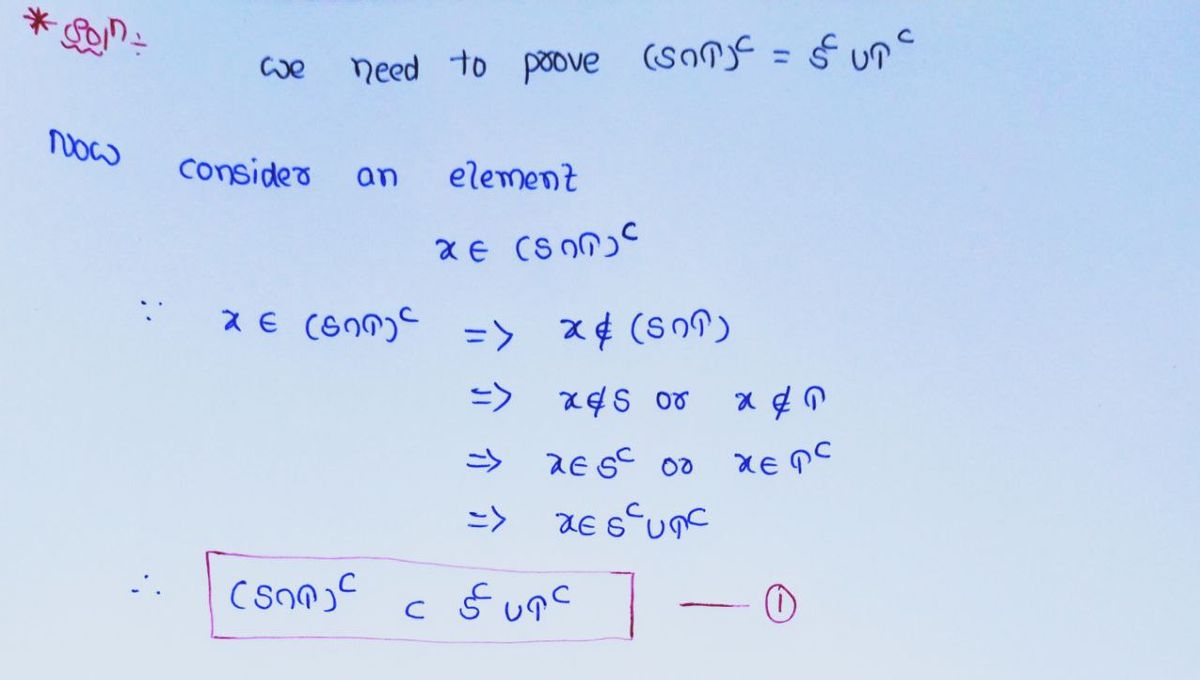 * Soln :-
we need to prove (S∩T)ᶜ = Sᶜ ∪ Tᶜ
Now consider an element
x ∈ (S∩T)ᶜ
∵ x ∈ (S∩T)ᶜ => x ∉ (S∩T)
=> x ∉ S or x ∉ T
=> x ∈ Sᶜ or x ∈ Tᶜ
=> x ∈ Sᶜ ∪ Tᶜ
∴ (S∩T)ᶜ ⊂ Sᶜ ∪ Tᶜ — ①